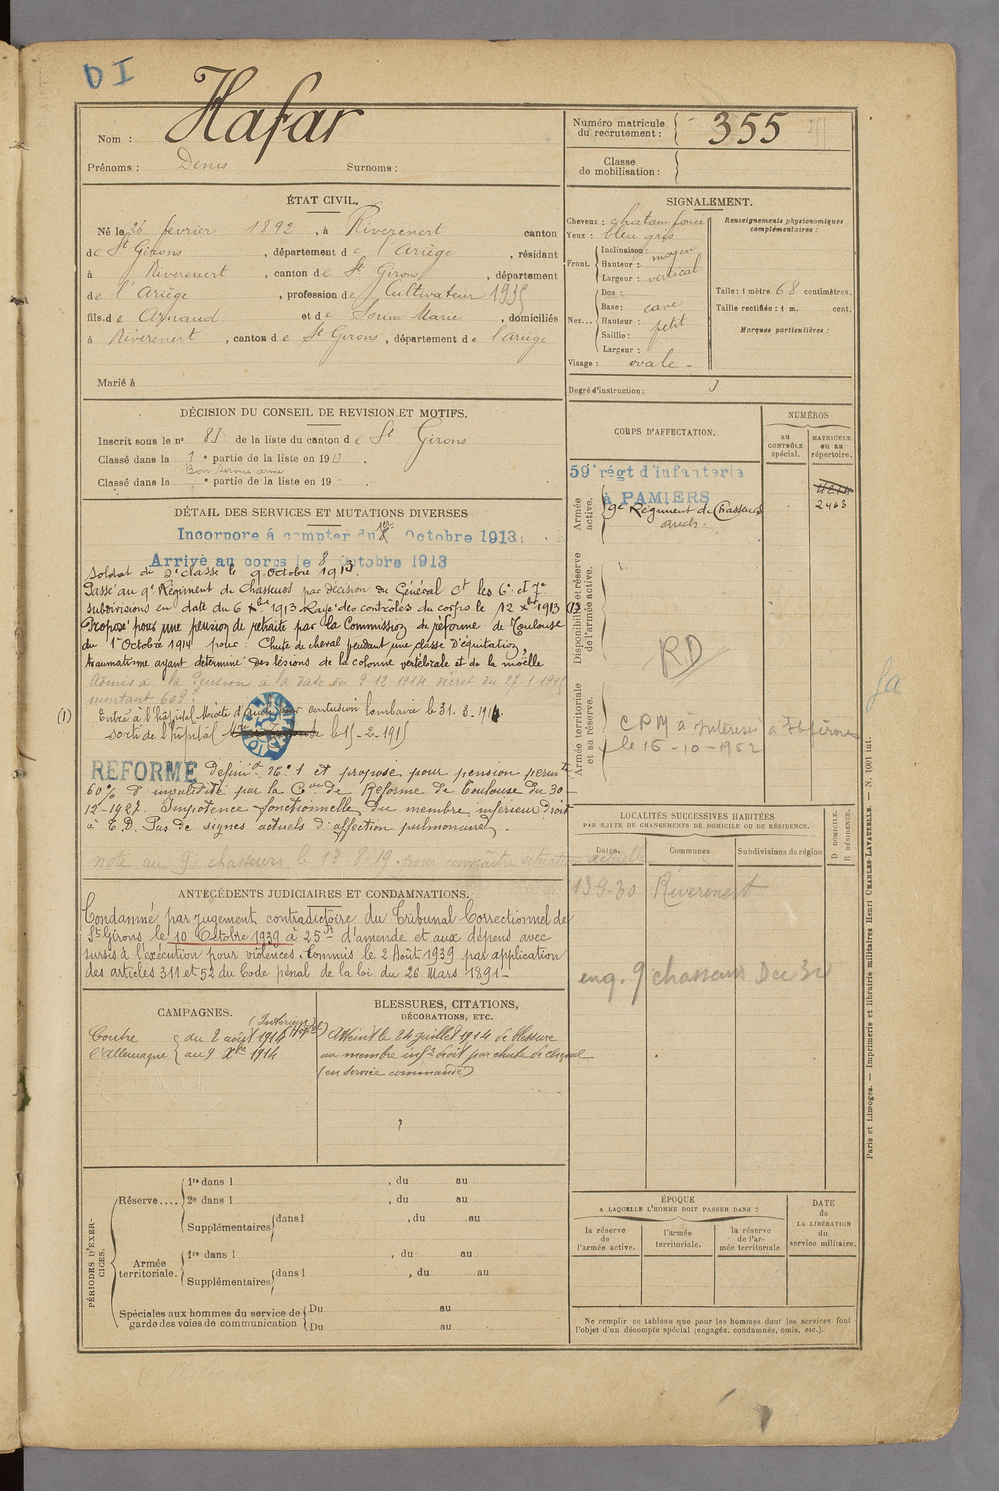 D I
Nom : Hafar
Prénoms : Denis Surnoms :
Numéro matricule du recrutement : 355
Classe de mobilisation :
ÉTAT CIVIL.
Né le 26 février 1892, à Riverenert canton
de St Girons, département de Ariège, résidant
à Riverenert, canton de St Girons, département
de l'Ariège, profession de Cultivateur 1935
fils de Arnaud et de Soum Marie, domiciliés
à Riverenert, canton de St Girons, département de l'ariège
Marié à
SIGNALEMENT.
Cheveux : chatain foncé
Yeux : bleu gris
Front. Inclinaison : moyen
Hauteur :
Largeur : vertical
Nez... Dos :
Base : cave
Hauteur : petit
Saillie :
Largeur :
Visage : ovale
Renseignements physionomiques complémentaires :
Taille : 1 mètre 68 centimètres.
Taille rectifiée : 1 m. cent.
Marques particulières :
Degré d'instruction : 3
DÉCISION DU CONSEIL DE REVISION ET MOTIFS.
Inscrit sous le n° 81 de la liste du canton de St Girons
Classé dans la 1e partie de la liste en 1913.
Bon service armé
Classé dans la e partie de la liste en 19
DÉTAIL DES SERVICES ET MUTATIONS DIVERSES
Incorporé à compter du 8 Octobre 1913
Arrivé au corps le 8 Octobre 1913
Soldat de 2e classe le 9 Octobre 1913.
Passé au 9e Régiment de Chasseurs par décision du Général Ct les 6e et 7e
subdivisions en date du 6 Xbre 1913. Rayé des contrôles du corps le 12 Xbre 1913 (1)
Proposé pour une pension de retraite par la Commission de réforme de Toulouse
du 1er Octobre 1914 pour : Chute de cheval pendant une classe d'équitation,
traumatisme ayant déterminé des lésions de la colonne vertébrale et de la moëlle
Admis à la pension à la date du 9.12.1914 décret du 27-1-1915
montant 609 f
(1) Entré à l'hôpital Mixte d'Auch pour contusion lombaire le 31.8.1914
sorti de l'hôpital le 15-2-1915
REFORMÉ Définit. n° 1 et proposé pour pension permte
60% d'invalidité par la Con de Réforme de Toulouse du 30-
12-1927. Impotence fonctionnelle du membre inférieur droit
à T.D. Pas de signes actuels d'affection pulmonaire.
noté au 9e chasseurs le 13-8-19 pour connaître situation actuelle
ANTÉCÉDENTS JUDICIAIRES ET CONDAMNATIONS.
Condamné par jugement contradictoire du Tribunal Correctionnel de
St Girons le 10 Octobre 1939 à 25 frs d'amende et aux dépens avec
sursis à l'exécution pour violences. Commis le 2 Août 1939 par application
des articles 311 et 52 du Code pénal de la loi du 26 Mars 1891
CAMPAGNES.
(Intérieur)
Contre l'Allemagne du 2 août 1914 au 9 Xbre 1914
BLESSURES, CITATIONS, DÉCORATIONS, ETC.
Atteint le 24 juillet 1914 de blessure
au membre infr droit par chute de cheval
(en service commandé)
PÉRIODES D'EXERCICES.
Réserve.... 1re dans l , du au
2e dans l , du au
Supplémentaires dans l , du au
Armée territoriale. 1re dans l , du au
Supplémentaires dans l , du au
Spéciales aux hommes du service de garde des voies de communication Du au
Du au
CORPS D'AFFECTATION.
NUMÉROS
au CONTRÔLE spécial.
MATRICULE ou au répertoire.
Armée active.
59e régt d'infanterie
à PAMIERS
9e Régiment de Chasseurs
auch.
2463
Disponibilité et réserve de l'armée active.
RD
Armée territoriale et sa réserve.
CPM à intéressé à St girons
le 16-10-1952
fa
LOCALITÉS SUCCESSIVES HABITÉES
PAR SUITE DE CHANGEMENTS DE DOMICILE OU DE RÉSIDENCE.
Dates. Communes Subdivisions de région D DOMICILE. R RÉSIDENCE.
13-9-30 Riverenert
eng. 9 chasseurs Dec 32
ÉPOQUE
A LAQUELLE L'HOMME DOIT PASSER DANS :
la réserve de l'armée active.
l'armée territoriale.
la réserve de l'armée territoriale
DATE de LA LIBÉRATION du service militaire.
Ne remplir ce tableau que pour les hommes dont les services font
l'objet d'un décompte spécial (engagés, condamnés, omis, etc.).
Paris et Limoges. — Imprimerie et librairie militaires Henri CHARLES-LAVAUZELLE. — N. 1001 int.